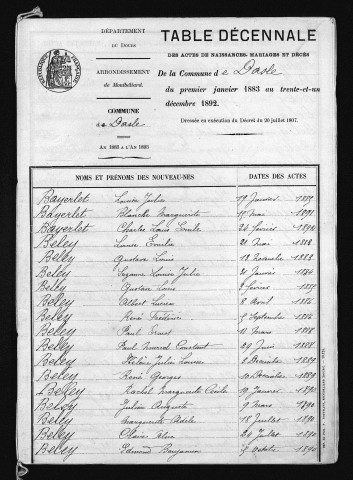 DÉPARTEMENT
DU DOUBS
ARRONDISSEMENT
de Montbéliard.
COMMUNE
de Dasle
AN 1883 A L'AN 1893
TABLE DÉCENNALE
DES ACTES DE NAISSANCES, MARIAGES ET DÉCÈS
De la Commune de Dasle
du premier janvier 1883 au trente-et-un
décembre 1892.
Dressée en exécution du Décret du 20 juillet 1807.
NOMS ET PRÉNOMS DES NOUVEAU-NÉS DATES DES ACTES
Bayerlet Louise Julie 19 Janvier 1889
Bayerlet Blanche Marguerite 17 mai 1891
Bayerlet Charles Louis Emile 24 février 1892
Beley Louise Emilie 21 mai 1883
Beley Gustave Louis 18 Novembre 1883
Beley Suzanne Louise Julie 21 Janvier 1884
Beley Gustave Louis 8 février 1885
Beley Albert Lucien 8 Avril 1886
Beley René Frédéric 5 Septembre 1886
Beley Paul Ernest 11 Mars 1888
Beley Paul Marcel Constant 29 Juin 1888
Beley Hélène Julie Louise 8 Décembre 1889
Beley René Georges 10 Décembre 1889
Beley Rachel Marguerite Cécile 19 Janvier 1890
Beley Julien Auguste 9 Mars 1890
Beley Marguerite Adèle 18 Juillet 1890
Beley Claire Aline 29 Juillet 1890
Beley Edmond Benjamin 5 Octobre 1890